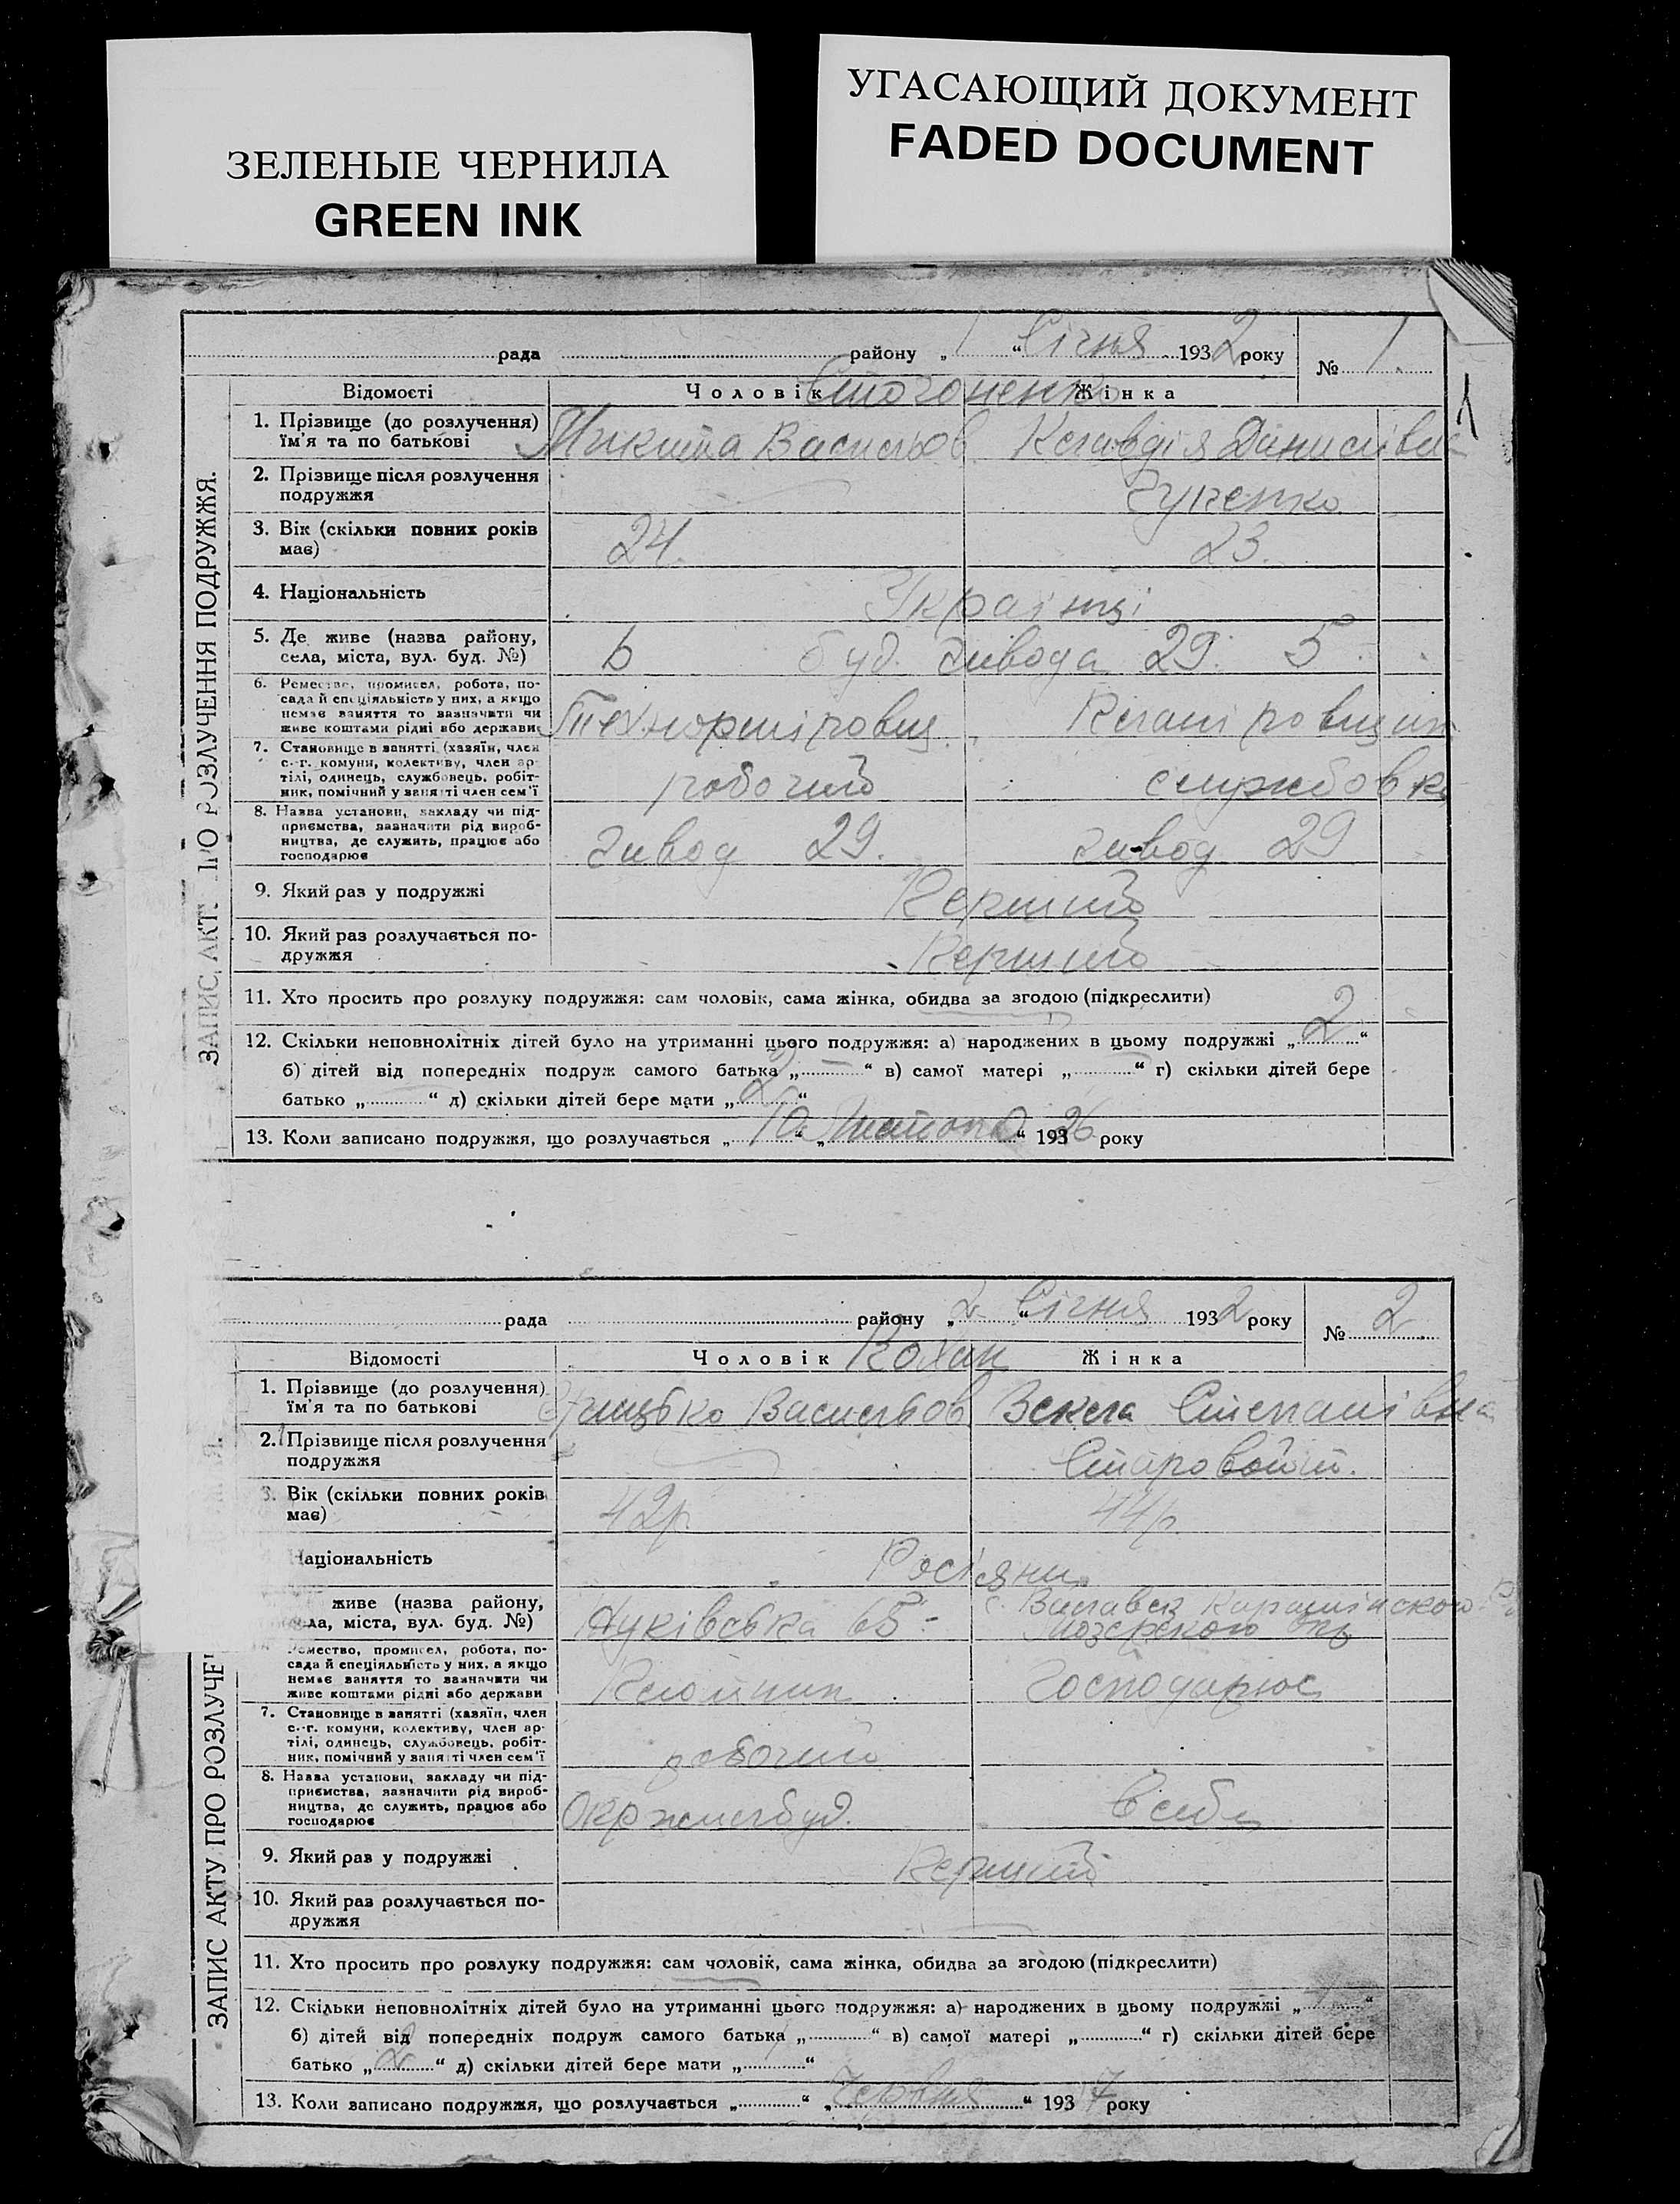 ЗЕЛЕНЫЕ ЧЕРНИЛА
GREEN INK
УГАСАЮЩИЙ ДОКУМЕНТ
FADED DOCUMENT
рада района „1“ Січня 1932 року № 1.
1
Відомості Чоловік Жінка
ЗАПИС АКТ ПРО РОЗЛУЧЕННЯ ПОДРУЖЖЯ.
1. Прізвище (до розлучення) Микита Васильов Клавдія Данилівна
їм'я та по батькові
2. Прізвище після розлучення
подружжя
3. Вік (скільки повних років 24. 23.
має)
4. Національність Українці
5. Де живе (назва району, буд. завода 29. 5
села, міста, вул. буд. №)
6. Ремество, промисел, робота, по-
сада й спеціяльність у них, а якщо
немає заняття то зазначити чи
живе коштами рідні або держави
7. Становище в занятті (хазяїн, член
с.-г. комуни, колективу, член ар-
тілі, одинець, службовець, робіт- робочий службовка
ник, помічний у занятті член сем'ї
8. Назва установи, закладу чи під-
приємства, зазначити рід вироб-
ництва, де служить, працює або завод 29. завод 29
господарює
9. Який раз у подружжі Перший
10. Який раз розлучається по- Перший
дружжя
11. Хто просить про розлуку подружжя: сам чоловік, сама жінка, обидва за згодою (підкреслити)
12. Скільки неповнолітніх дітей було на утриманні цього подружжя: а) народжених в цьому подружжі „2“
б) дітей від попередніх подруж самого батька „ “ в) самої матері „ “ г) скільки дітей бере
батько „ “ д) скільки дітей бере мати „2“
13. Коли записано подружжя, що розлучається „10“ „Листопад“ 193 26 року
рада району „2“ Січня 1932 року № 2.
Відомості Чоловік Кохан Жінка
ЗАПИС АКТУ ПРО РОЗЛУЧЕ
1. Прізвище (до розлучення) Грицько Васильов Степанівна
їм'я та по батькові
2. Прізвище після розлучення
подружжя
3. Вік (скільки повних років 42р. 44р.
має)
Національність Росіяни
живе (назва району, 65
ла, міста, вул. буд. №)
мество, промисел, робота, по-
сада й спеціяльність у них, а якщо
немає заняття то зазначити чи Господарює
живе коштами рідні або держави
7. Становище в занятті (хазяїн, член
с.-г. комуни, колективу, член ар-
тілі, одинець, службовець, робіт-
ник, помічний у занятті член сем'ї робочий
8. Назва установи, закладу чи під-
приємства, зазначити рід вироб-
ництва, де служить, працює або
господарює
9. Який раз у подружжі Перший
10. Який раз розлучається по-
дружжя
11. Хто просить про розлуку подружжя: сам чоловік, сама жінка, обидва за згодою (підкреслити)
12. Скільки неповнолітніх дітей було на утриманні цього подружжя: а) народжених в цьому подружжі „ “
б) дітей від попередніх подруж самого батька „ “ в) самої матері „ “ г) скільки дітей бере
батько „2“ д) скільки дітей бере мати „ “
13. Коли записано подружжя, що розлучається „ “ „Червня“ 193 7 року